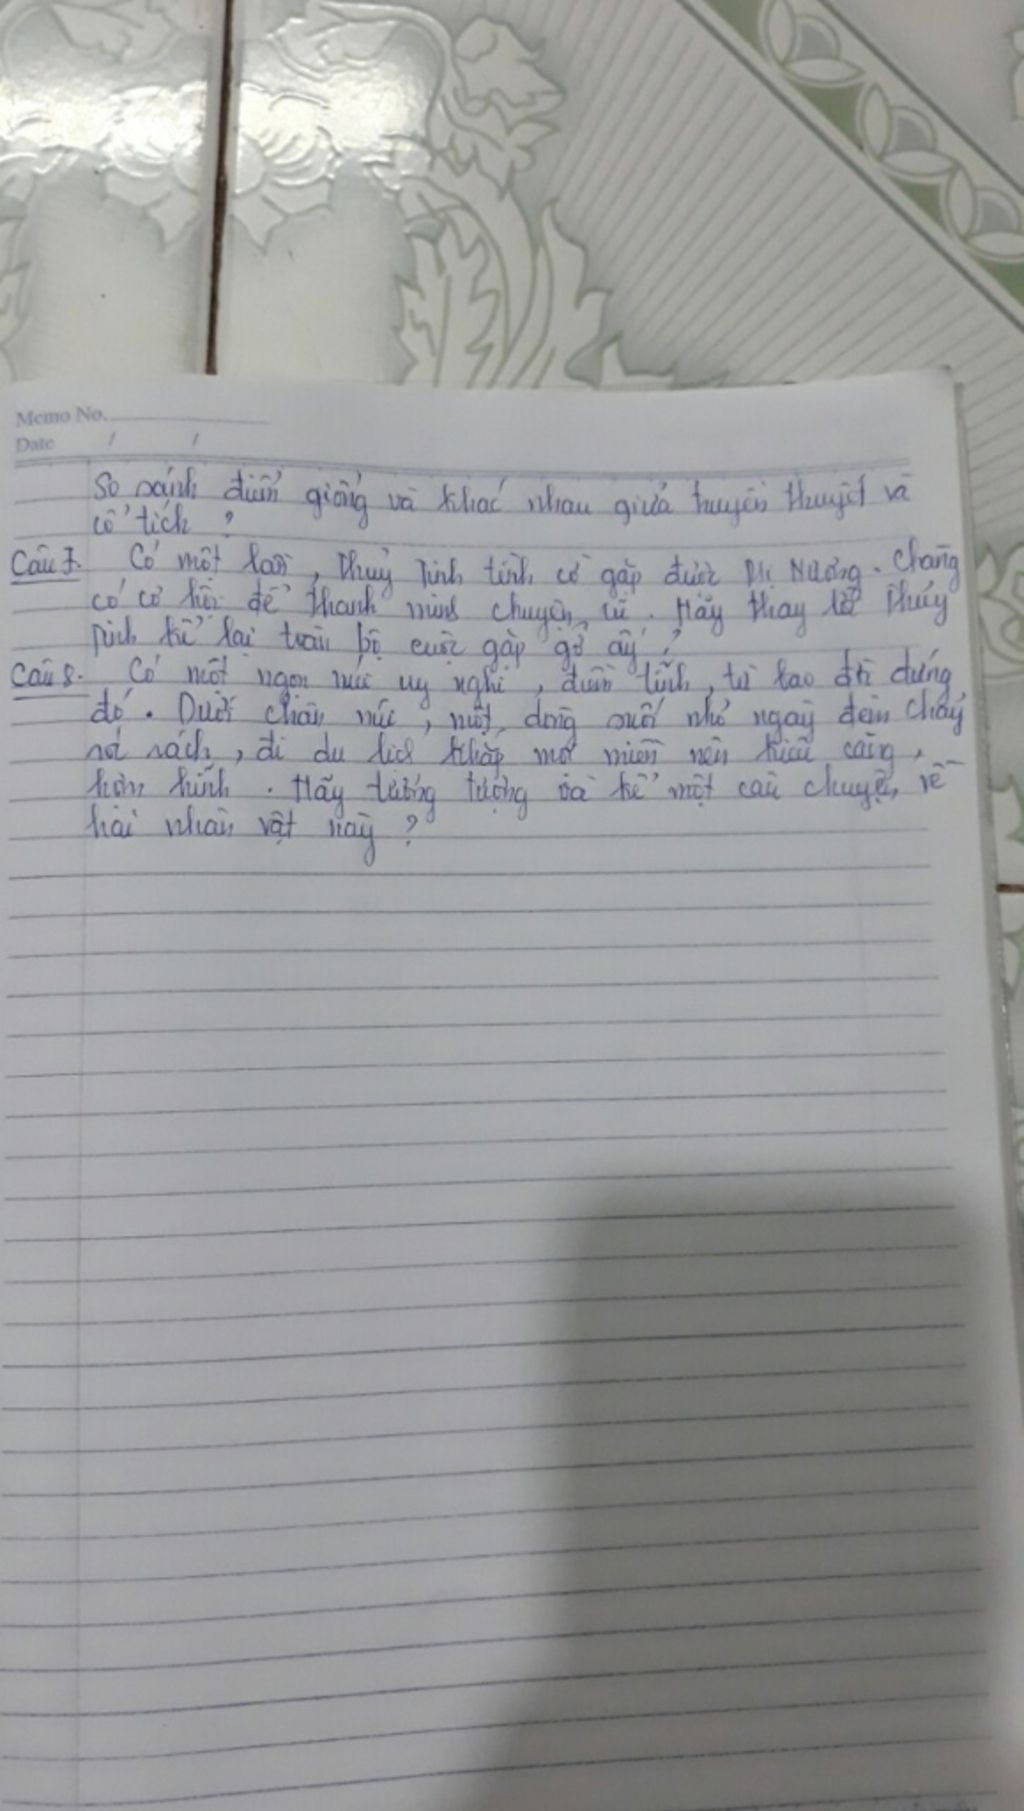 Memo No.
Date / /
So sánh điểm giống và khác nhau giữa truyền thuyết và
cổ tích ?
Câu 7. Có một lần, Thủy Tinh tình cờ gặp được Mị Nương. Chàng
có cơ hội để thanh minh chuyện cũ. Hãy thay lời Thủy
Tinh kể lại toàn bộ cuộc gặp gỡ ấy ?
Câu 8. Có một ngọn núi uy nghi, điềm tĩnh, từ bao đời đứng
đó. Dưới chân núi, một dòng suối nhỏ ngày đêm chảy
róc rách, đi du lịch khắp mọi miền nên kiêu căng,
hợm hĩnh. Hãy tưởng tượng và kể một câu chuyện về
hai nhân vật này ?